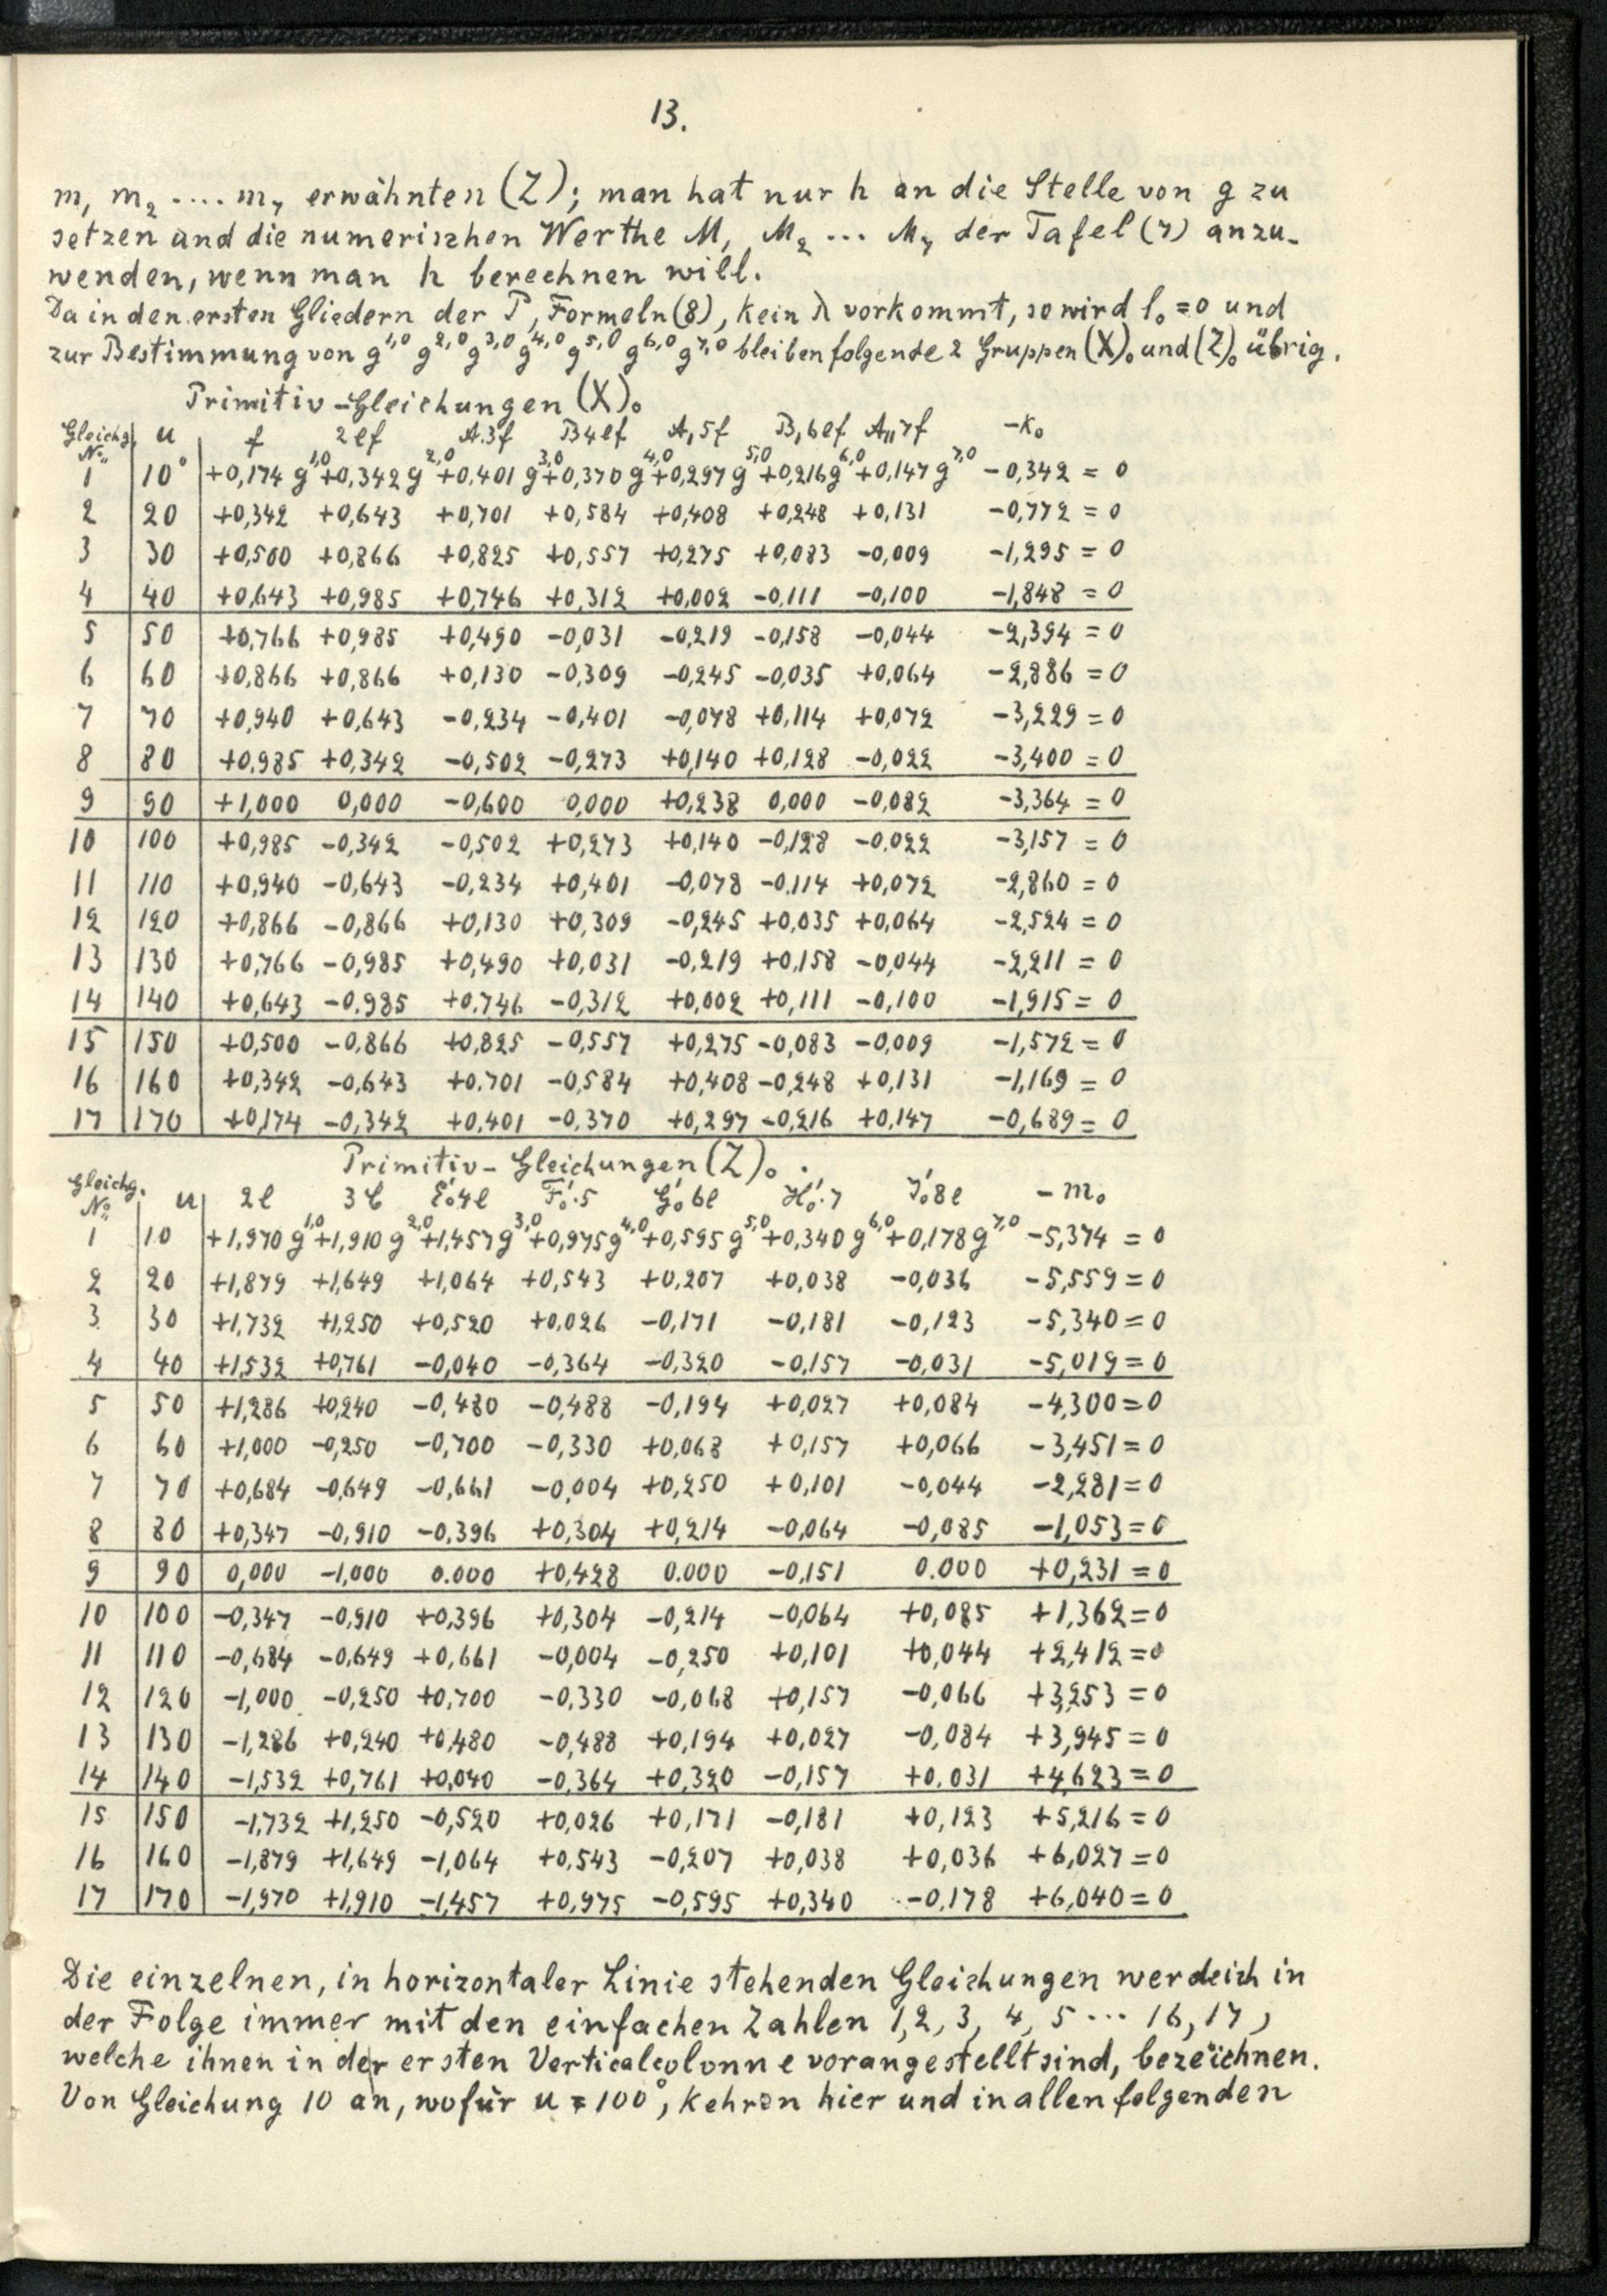 13.
m, m₂ .... m₇ erwähnten (Z); man hat nur h an die Stelle von g zu
setzen und die numerischen Werthe M, M₂ ... M₇ der Tafel (7) anzu-
wenden, wenn man h berechnen will.
Da in den ersten Gliedern der P, Formeln (8), kein λ vorkommt, so wird l₀ = 0 und
zur Bestimmung von g¹,⁰ g²,⁰ g³,⁰ g⁴,⁰ g⁵,⁰ g⁶,⁰ g⁷,⁰ bleiben folgende 2 Gruppen (X)₀ und (Z)₀ übrig.
Primitiv-Gleichungen (X)₀
Gleichg. N° u f 2ef A.3f B4ef A,5f B,6ef A,,7f -K₀
1 10° +0,174 g¹,⁰ +0,342 g²,⁰ +0,401 g³,⁰ +0,370 g⁴,⁰ +0,297 g⁵,⁰ +0,216 g⁶,⁰ +0,147 g⁷,⁰ -0,342 = 0
2 20 +0,342 +0,643 +0,701 +0,584 +0,408 +0,248 +0,131 -0,772 = 0
3 30 +0,500 +0,866 +0,825 +0,557 +0,275 +0,083 -0,009 -1,295 = 0
4 40 +0,643 +0,985 +0,746 +0,312 +0,002 -0,111 -0,100 -1,848 = 0
5 50 +0,766 +0,985 +0,490 -0,031 -0,219 -0,158 -0,044 -2,394 = 0
6 60 +0,866 +0,866 +0,130 -0,309 -0,245 -0,035 +0,064 -2,886 = 0
7 70 +0,940 +0,643 -0,234 -0,401 -0,078 +0,114 +0,072 -3,229 = 0
8 80 +0,985 +0,342 -0,502 -0,273 +0,140 +0,128 -0,022 -3,400 = 0
9 90 +1,000 0,000 -0,600 0,000 +0,238 0,000 -0,082 -3,364 = 0
10 100 +0,985 -0,342 -0,502 +0,273 +0,140 -0,128 -0,022 -3,157 = 0
11 110 +0,940 -0,643 -0,234 +0,401 -0,078 -0.114 +0,072 -2,860 = 0
12 120 +0,866 -0,866 +0,130 +0,309 -0,245 +0,035 +0,064 -2,524 = 0
13 130 +0,766 -0,985 +0,490 +0,031 -0,219 +0,158 -0,044 -2,211 = 0
14 140 +0,643 -0.985 +0.746 -0,312 +0,002 +0,111 -0,100 -1,915 = 0
15 150 +0,500 -0,866 +0,825 -0,557 +0,275 -0,083 -0,009 -1,572 = 0
16 160 +0,342 -0,643 +0.701 -0,584 +0,408 -0,248 +0,131 -1,169 = 0
17 170 +0,174 -0,342 +0,401 -0,370 +0,297 -0,216 +0,147 -0,689 = 0
Primitiv-Gleichungen (Z)₀.
Gleichg. N° u 2e 3 E₀'4e F₀'.5 G₀'6e H₀'.7 J₀'8e -m₀
1 10 +1,970 g¹,⁰ +1,910 g²,⁰ +1,457 g³,⁰ +0,975 g⁴,⁰ +0,595 g⁵,⁰ +0,340 g⁶,⁰ +0,178 g⁷,⁰ -5,374 = 0
2 20 +1,879 +1,649 +1,064 +0,543 +0,207 +0,038 -0,036 -5,559 = 0
3 30 +1,732 +1,250 +0,520 +0,026 -0,171 -0,181 -0,123 -5,340 = 0
4 40 +1,532 +0,761 -0,040 -0,364 -0,320 -0,157 -0,031 -5,019 = 0
5 50 +1,286 +0,240 -0,480 -0,488 -0,194 +0,027 +0,084 -4,300 = 0
6 60 +1,000 -0,250 -0,700 -0,330 +0,068 +0,157 +0,066 -3,451 = 0
7 70 +0,684 -0,649 -0,661 -0,004 +0,250 +0,101 -0,044 -2,281 = 0
8 80 +0,347 -0,910 -0,396 +0,304 +0,214 -0,064 -0,085 -1,053 = 0
9 90 0,000 -1,000 0.000 +0,428 0.000 -0,151 0.000 +0,231 = 0
10 100 -0,347 -0,910 +0,396 +0,304 -0,214 -0,064 +0,085 +1,362 = 0
11 110 -0,684 -0,649 +0,661 -0,004 -0,250 +0,101 +0,044 +2,412 = 0
12 120 -1,000 -0,250 +0,700 -0,330 -0,068 +0,157 -0,066 +3,253 = 0
13 130 -1,286 +0,240 +0,480 -0,488 +0,194 +0,027 -0,084 +3,945 = 0
14 140 -1,532 +0,761 +0,040 -0,364 +0,320 -0,157 +0.031 +4,623 = 0
15 150 -1,732 +1,250 -0,520 +0,026 +0,171 -0,181 +0,123 +5,216 = 0
16 160 -1,879 +1,649 -1,064 +0,543 -0,207 +0,038 +0,036 +6,027 = 0
17 170 -1,970 +1,910 -1,457 +0,975 -0,595 +0,340 -0,178 +6,040 = 0
Die einzelnen, in horizontaler Linie stehenden Gleichungen werde ich in
der Folge immer mit den einfachen Zahlen 1, 2, 3, 4, 5 ... 16, 17,
welche ihnen in der ersten Verticalcolonne vorangestellt sind, bezeichnen.
Von Gleichung 10 an, wofür u = 100°, kehren hier und in allen folgenden